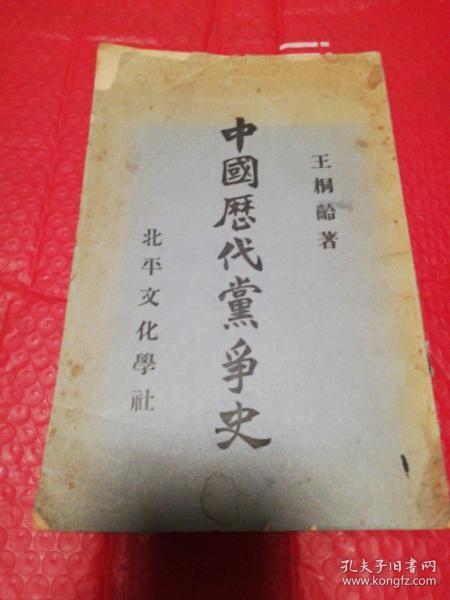 王桐齡著
中國歷代黨爭史
北平文化學社
孔夫子旧书网
www.kongfz.com